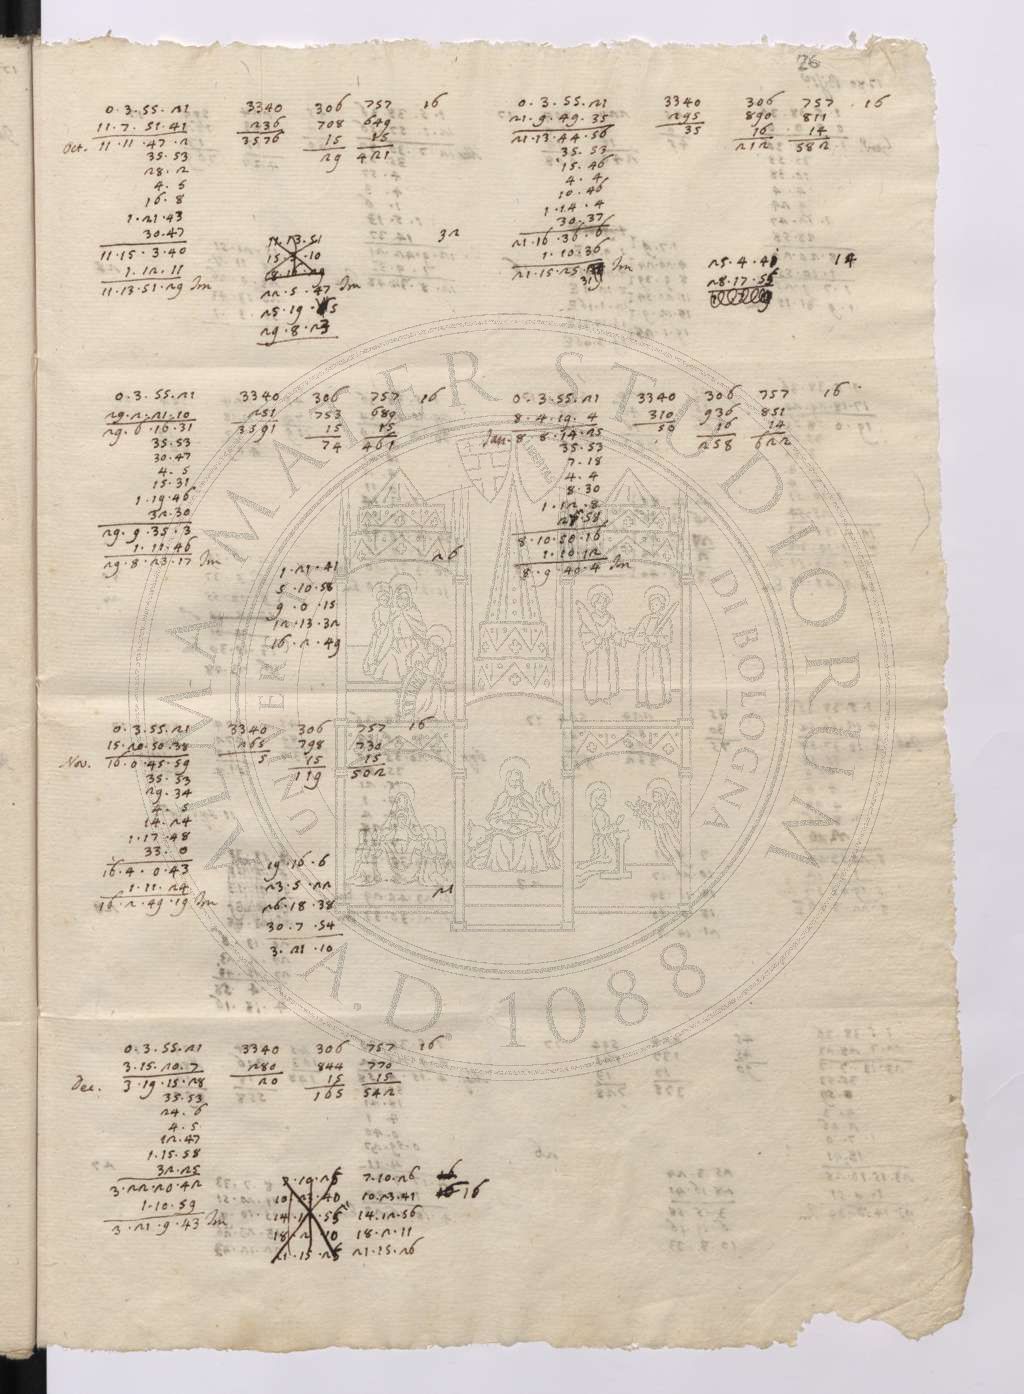 26
0.3.55.21 3340 306 757 16
11.7.51.41 236 708 649
Oct. 11.11.47.2 3576 15 15
35.53 29 421
28.2
4.5
16.8
1.21.43
30.47 32
11.15.3.40
1.12.11
11.13.51.29
11.13.51
15.3.10
22.5.47
25.19.
29.8.23
0.3.55.21 3340 306 757 16
21.9.49.35 295 890 811
21.13.44.56 35 16 14
35.53 212 582
15.46
4.4
10.46
1.14.4
30.37
21.16.36.6
1.10.36
21.15.25.
31
25.4.41 14
28.17.55
0.3.55.21 3340 306 757 16
29.2.21.10 251 753 689
29.6.16.31 3591 15 15
35.53 74 461
30.47
4.5
15.31
1.19.46
32.30
29.9.35.3
1.11.46
29.8.23.17
26
1.21.41
5.10.58
9.0.15
12.13.32
16.2.49
0.3.55.21 3340 306 757 16
8.4.19.4 310 936 851
Jan. 8.8.14.25 50 16 14
35.53 258 622
7.18
4.4
8.30
1.12.8
8.10.50.16
1.10.12
8.9.40.4
0.3.55.21 3340 306 757 16
15.20.50.38 265 798 730
Nov. 16.0.45.59 5 15 15
35.53 119 502
29.34
4.5
14.24
1.17.48
33.0
16.4.0.43
1.11.24
16.2.49.19
19.16.6
23.5.22 21
26.18.38
30.7.54
3.21.10
0.3.55.21 3340 306 757 16
3.15.20.7 280 844 770
Dec. 3.19.15.28 20 15 15
35.53 165 542
24.6
4.5
12.47
1.15.58
32.25
3.22.20.42
1.10.59
3.21.9.43
7.10.26 7.10.26 16
10.23.40 10.23.41 16
14.12.55 14.12.56
18.2.10 18.2.11
21.15.25 21.15.26